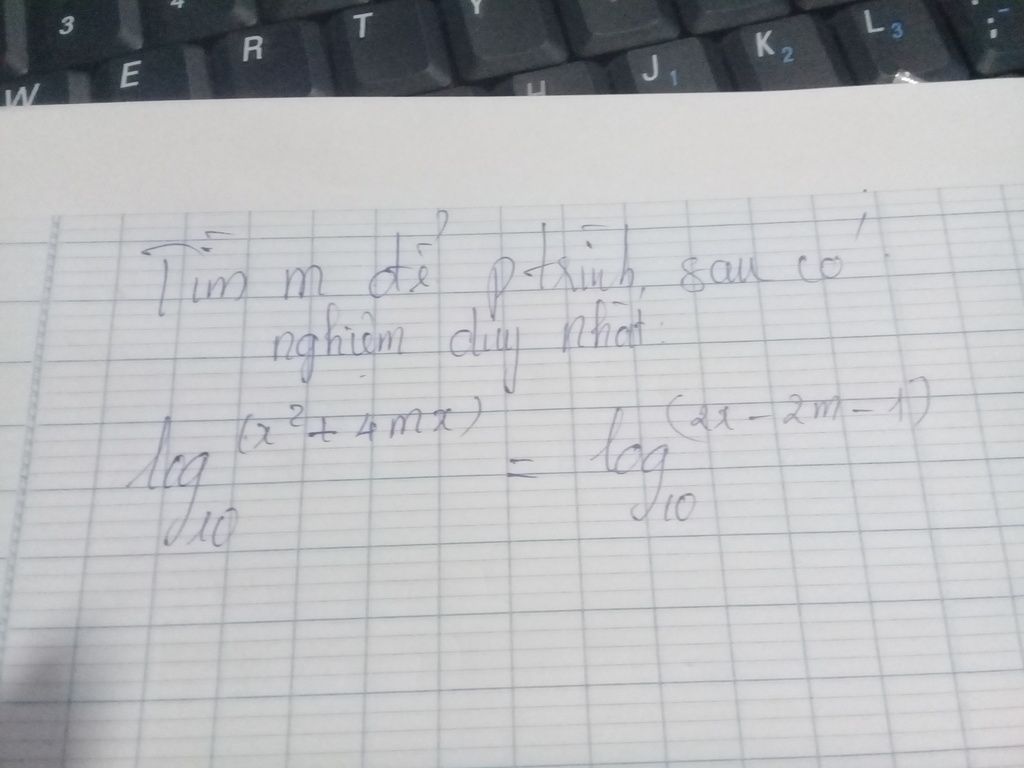 3 4
W E R T Y H J 1 K 2 L 3 : ;
Tìm m để ptrình sau có
nghiệm duy nhất:
log₁₀ (x² + 4mx) = log₁₀ (2x - 2m - 1)